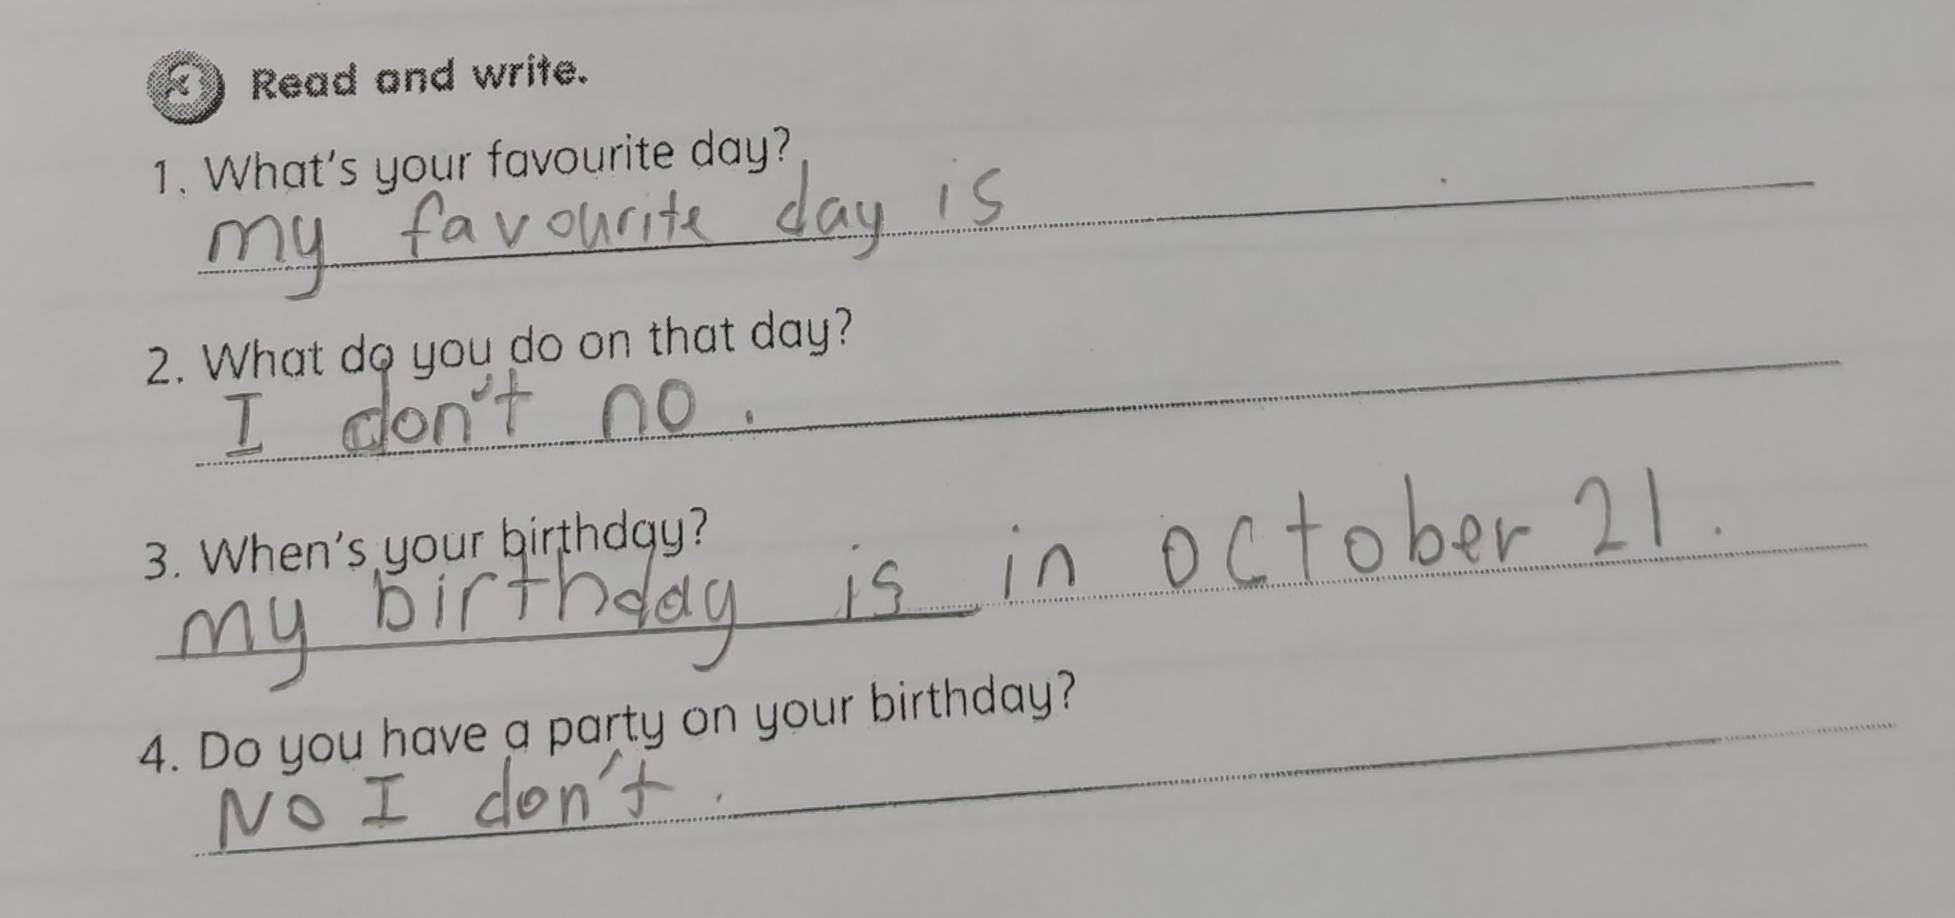 3 Read and write.
1. What's your favourite day?
my favourite day is
2. What do you do on that day?
I don't no.
3. When's your birthday?
my birthday is in october 21.
4. Do you have a party on your birthday?
No I don't.